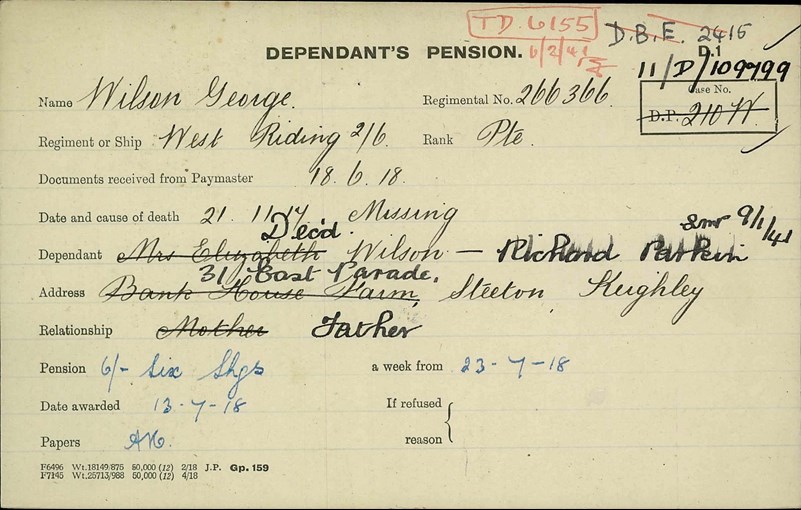 T.D. 6155 D.B.E. 2415
6/2/41
DEPENDANT'S PENSION. D.1
11/D/109799
Name Wilson George. Regimental No. 266366. Case No.
D.P. 210 W.
Regiment or Ship West Riding 2/6 Rank Pte.
Documents received from Paymaster 18.6.18.
Date and cause of death 21.11.17. Missing
Dec'd 9/1/41
Dependant Mrs Elizabeth Wilson — Richard Parkin
31, East Parade.
Address Bank House Farm, Steeton Keighley
Relationship Mother Father
Pension 6/- Six Shgs a week from 23-7-18
Date awarded 13-7-18 If refused
Papers reason
F6496 Wt.18149/875 50,000 (12) 2/18 J.P. Gp. 159
F7145 Wt.25713/988 50,000 (12) 4/18